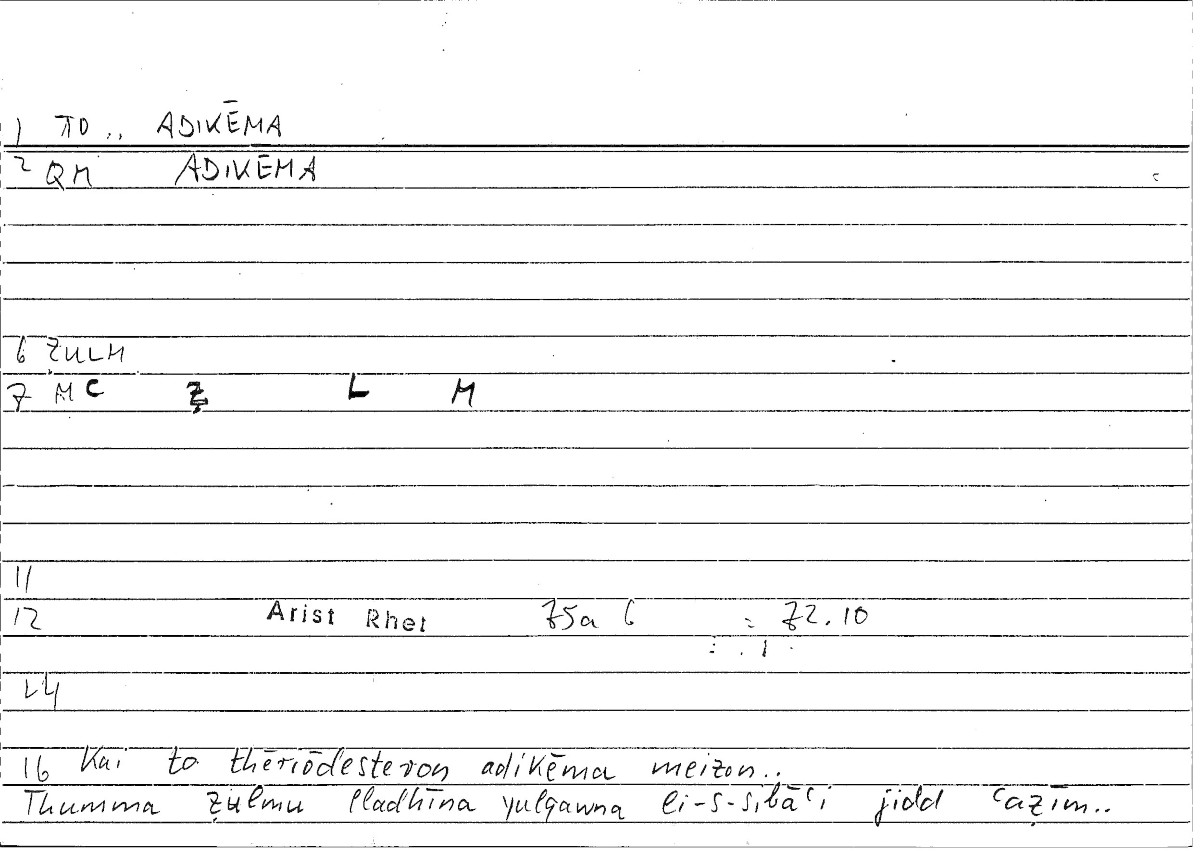 1 TO .. ADIKĒMA
2 QM ADIKĒMA
6 ẒULM
7 MC Ẓ L M
11
12 Arist Rhet 75a 6 : 72.10
14
16 Kai to thēriōdesteron adikēma meizon..
Thumma ẓulmu lladhīna yulqawna li-s-sibāʿi jidd ʿaẓīm..